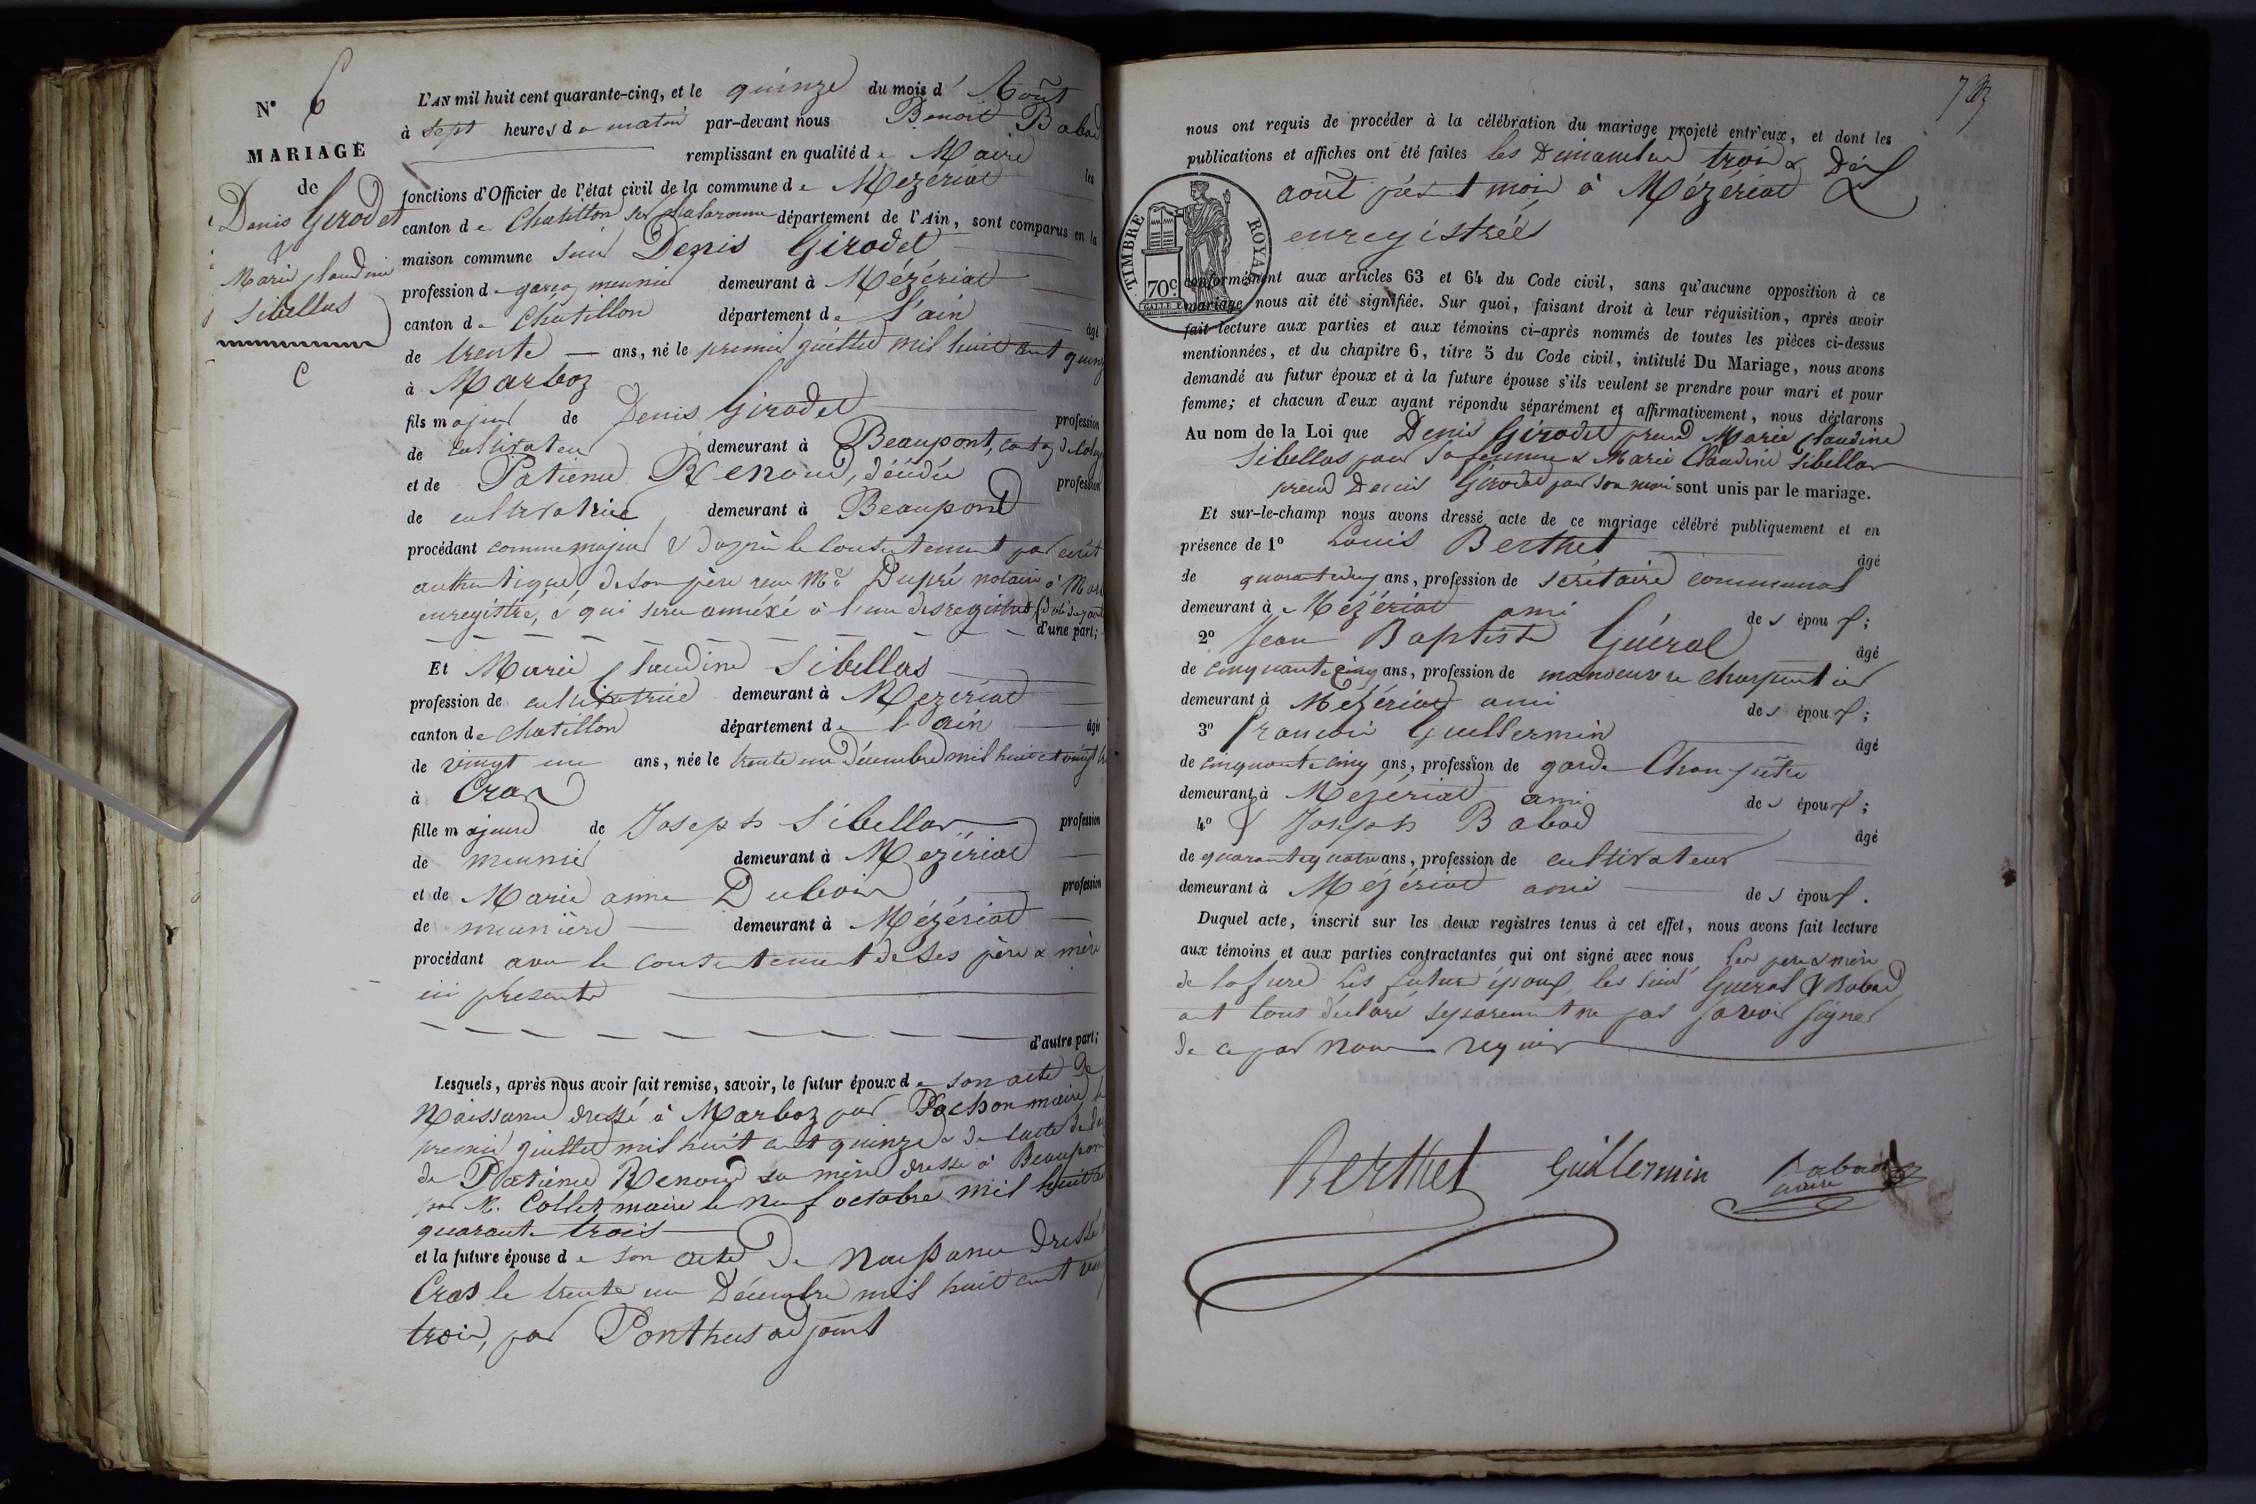 N° 6
MARIAGE
de
Denis Girodet
&
Marie Claudine
Sibellas
C
L'AN mil huit cent quarante-cinq, et le quinze du mois d'Août
à sept heures du matin par-devant nous Benoit Babad
remplissant en qualité de Maire les
fonctions d'Officier de l'état civil de la commune de Mézériat
canton de Chatillon sur Chalaronne département de l'Ain, sont comparus en la
maison commune sieur Denis Girodet
profession de garçon meunier demeurant à Mézériat
canton de Châtillon département de l'ain âgé
de trente ans, né le premier juillet mil huit cent quinze
à Marboz
fils majeur de Denis Girodet profession
de cultivateur demeurant à Beaupont, canton de
et de Patience Renoud, décédée profession
de cultivatrice, demeurant à Beaupont
procédant comme majeur & d'après le consentement par écrit
authentique, de son père reçu Me Dupré notaire à
enregistré, & qui sera annéxé à l'un des registres
d'une part;
Et Marie Claudine Sibellas
profession de cultivatrice demeurant à Mezériat
canton de Chatillon département de l'ain âgée
de vingt un ans, née le trente un Décembre mil huit cent vingt
à Cras
fille majeure de Joseph Sibellas profession
de meunier demeurant à Mezériat
et de Marie anne Dubois profession
de meunière demeurant à Mézériat
procédant avec le consentement de ses père & mère
ici presents
d'autre part;
Lesquels, après nous avoir fait remise, savoir, le futur époux de son acte de
Naissance dressé à Marboz par Pochon maire le
premier juillet mil huit cent quinze & de l'acte de
de Patience Renoud sa mère dressé à Beaupont
par M. Collet maire le neuf octobre mil huit cent
quarante trois
et la future épouse de son acte de Naissance dressé
Cras le trente un Décembre mil huit cent vingt
trois, par Ponthus adjoint
nous ont requis de procéder à la célébration du mariage projeté entr'eux, et dont les
publications et affiches ont été faites les Dimanches trois & Dix
août présent mois à Mézériat
enregistrées
TIMBRE ROYAL
70c
conformément aux articles 63 et 64 du Code civil, sans qu'aucune opposition à ce
mariage nous ait été signifiée. Sur quoi, faisant droit à leur réquisition, après avoir
fait lecture aux parties et aux témoins ci-après nommés de toutes les pièces ci-dessus
mentionnées, et du chapitre 6, titre 5 du Code civil, intitulé Du Mariage, nous avons
demandé au futur époux et à la future épouse s'ils veulent se prendre pour mari et pour
femme; et chacun d'eux ayant répondu séparément et affirmativement, nous déclarons
Au nom de la Loi que Denis Girodet prend Marie Claudine
Sibellas pour sa femme & Marie Claudine Sibellas
prend Denis Girodet pour son mari sont unis par le mariage.
Et sur-le-champ nous avons dressé acte de ce mariage célébré publiquement et en
présence de 1° Louis Berthet âgé
de ans, profession de secrétaire communal
demeurant à Mézériat ami des époux;
2° Jean Baptiste Guéral âgé
de cinquante cinq ans, profession de manoeuvre charpentier
demeurant à Mézériat ami des époux;
3° François Guillermin âgé
de cinquante cinq ans, profession de garde Champêtre
demeurant à Mézériat ami des époux;
4° & Joseph Babad âgé
de quarante quatre ans, profession de cultivateur
demeurant à Mézériat ami des époux.
Duquel acte, inscrit sur les deux registres tenus à cet effet, nous avons fait lecture
aux témoins et aux parties contractantes qui ont signé avec nous, Les père & mère
de la future Les futurs époux, les sieurs Guéral & Babad
ont tous déclaré séparement ne pas savoir signer
de ce par nous requis
Berthet Guillermin Babad
maire